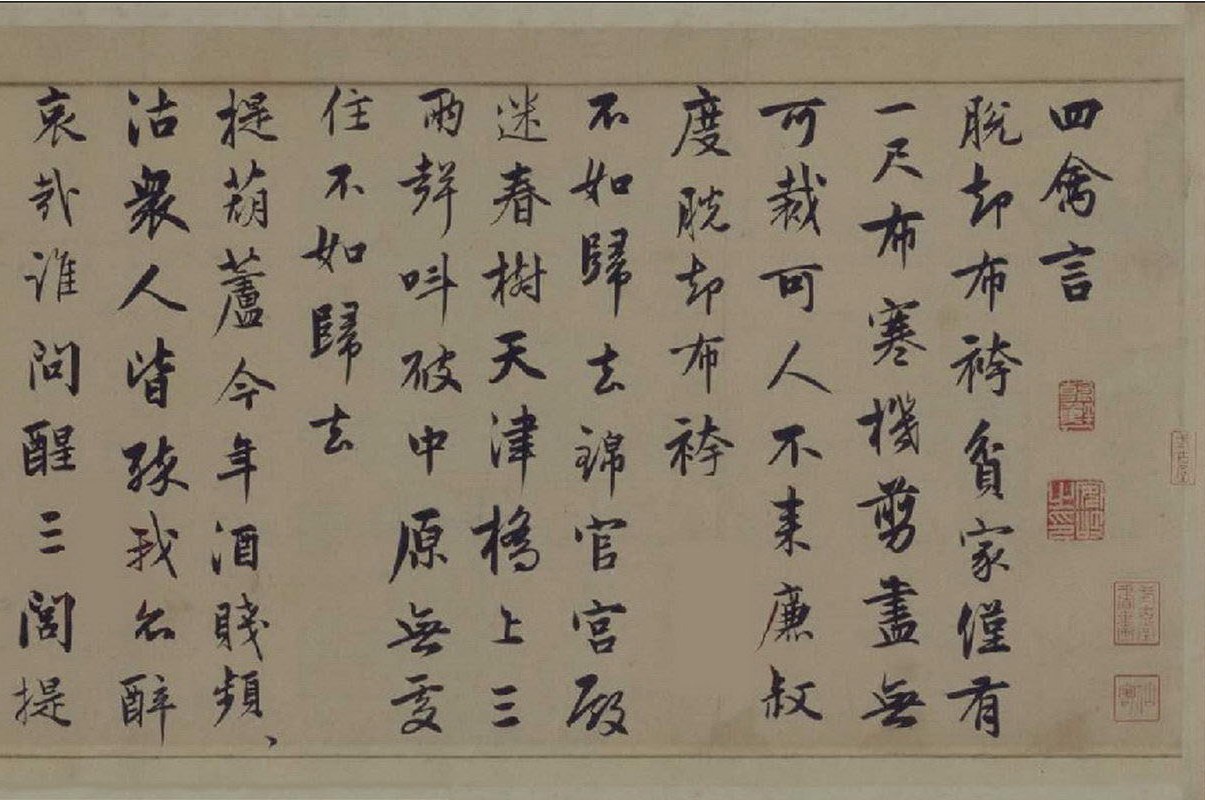 四禽言
脫却布袴貧家僅有
一尺布寒機剪盡無
可裁可人不来廉叔
度脫却布袴
不如歸去錦官宮殿
迷春樹天津橋上三
兩聲呌破中原無
住不如歸去
提葫蘆今年酒賤頻、
沽衆人皆醉我名醉
哀哉誰問醒三閭提